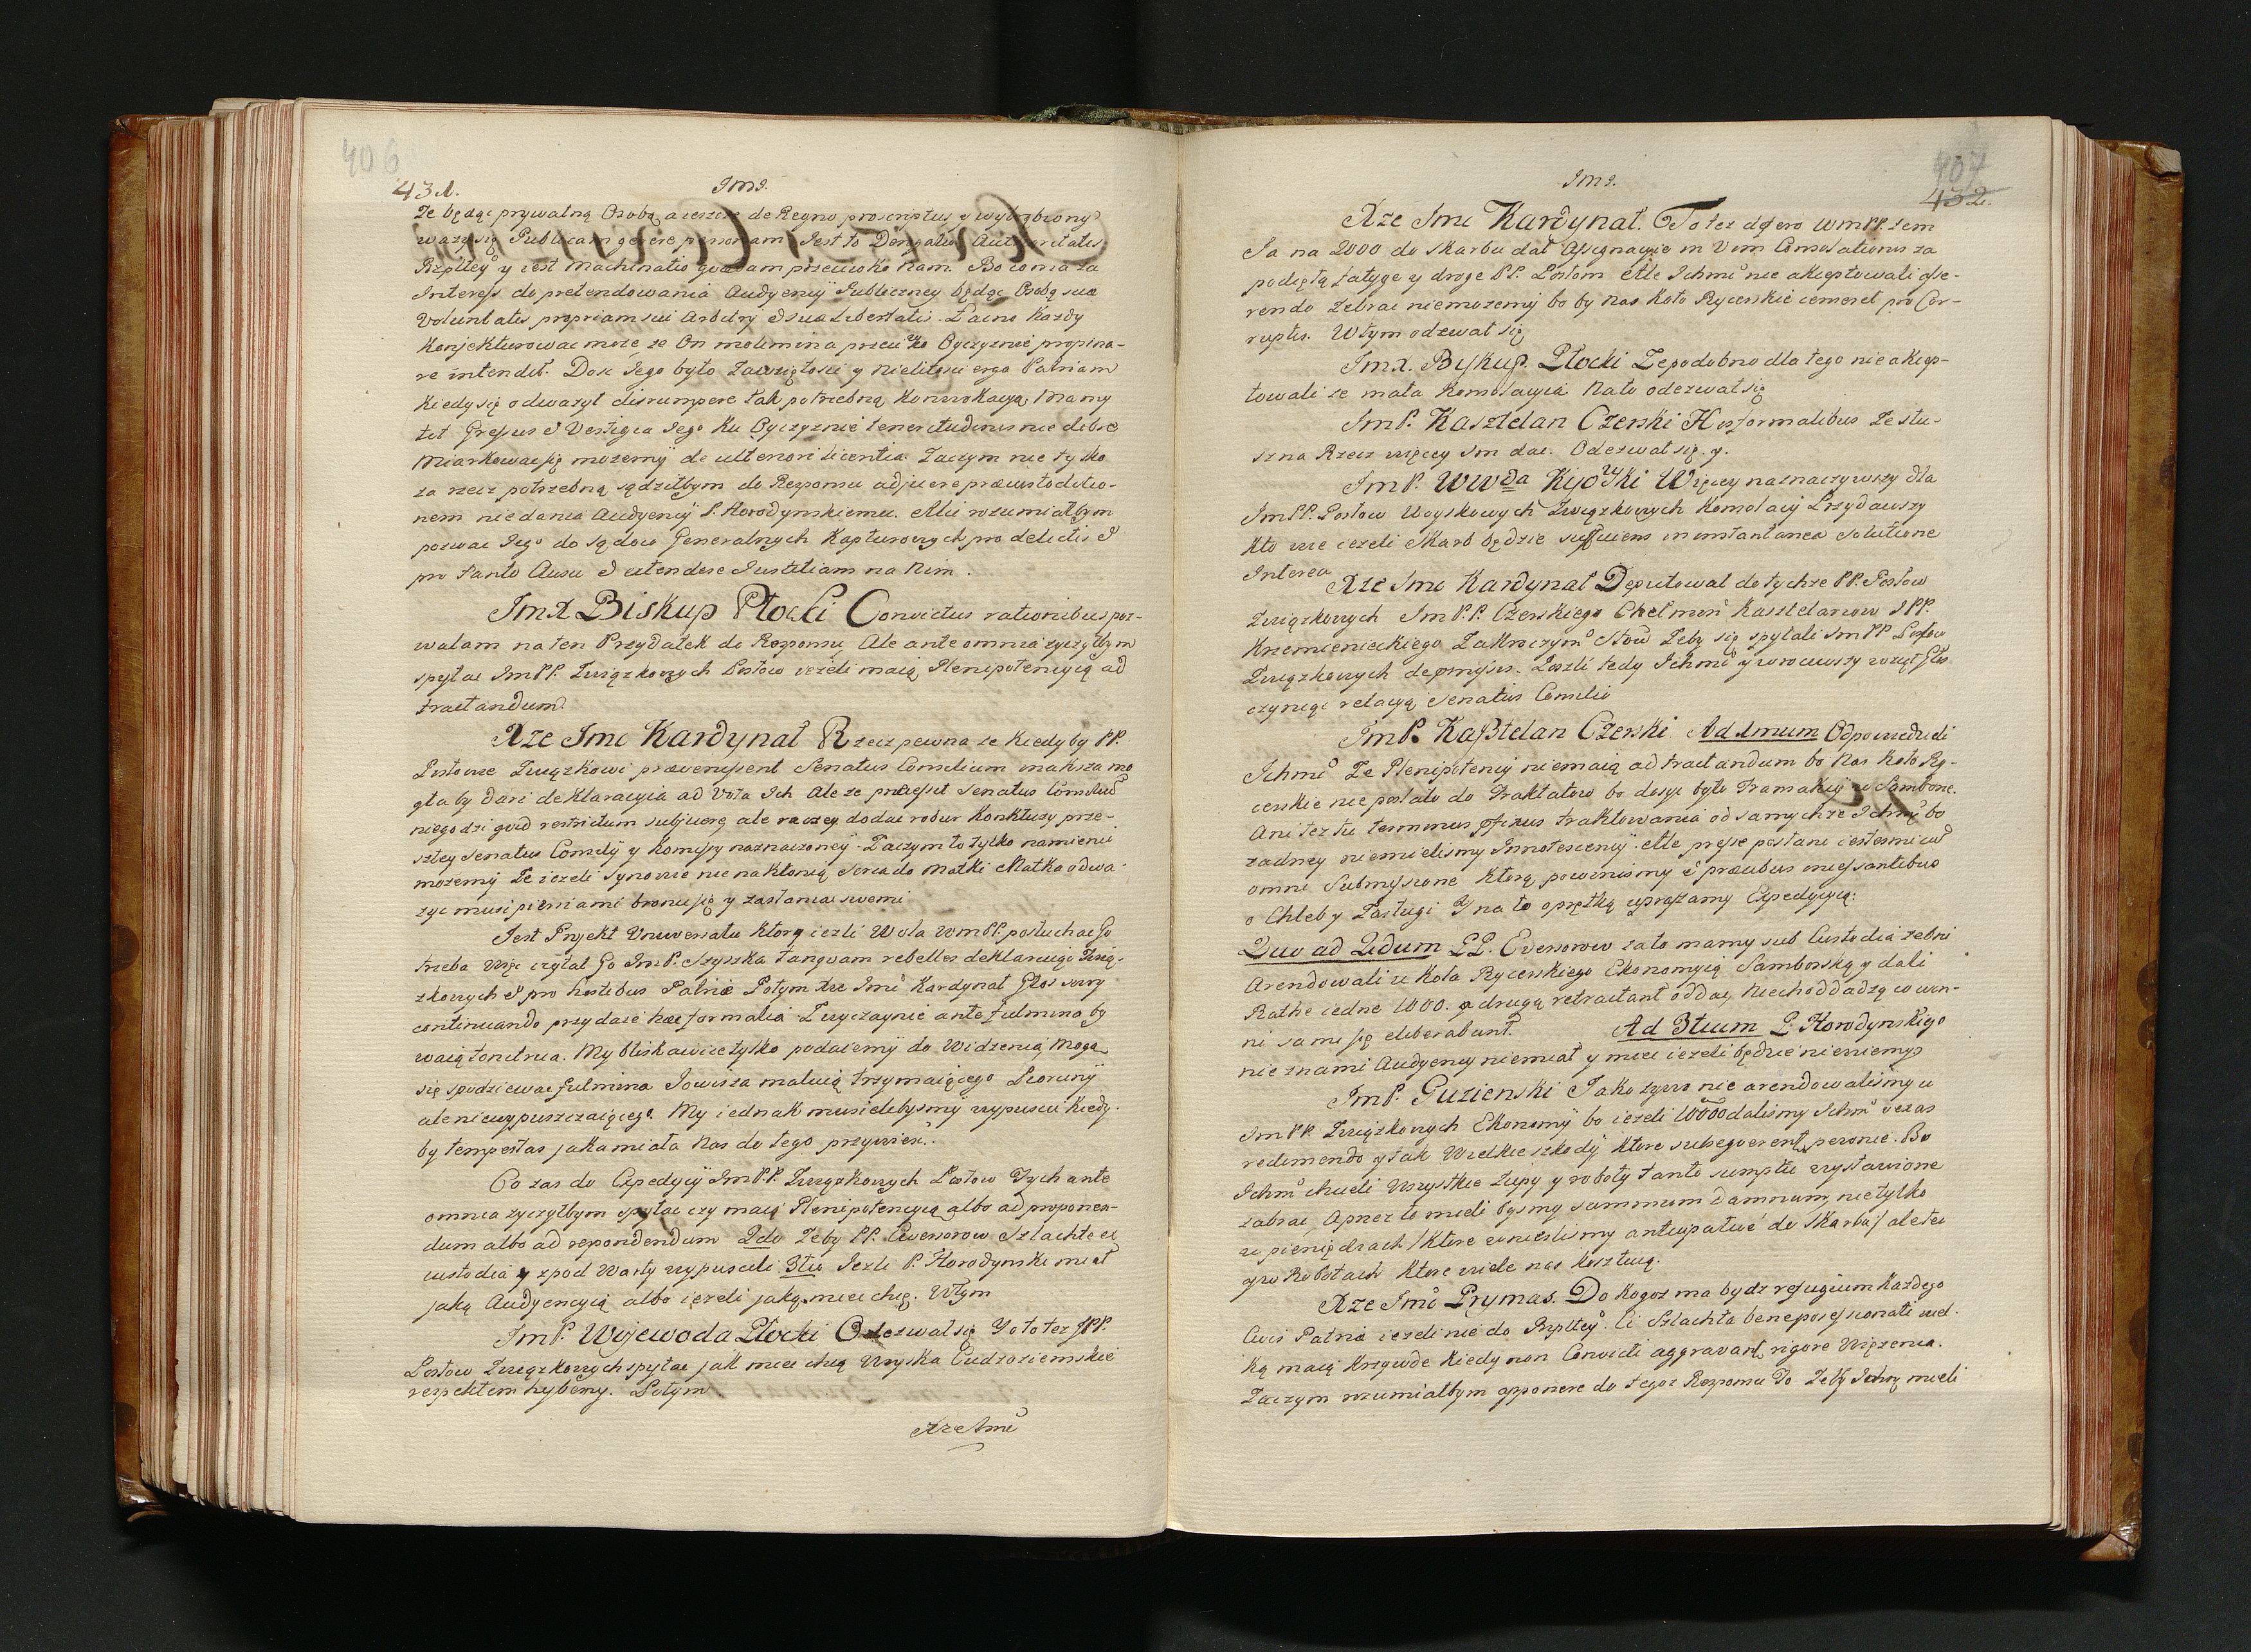 406
431.
Im&.
Ze będąc prywatną Osobą, a ieszcze de Regno proscriptus y wytrąbiony
waży się Publicam gerere personam Jest to Derogatio Authoritatis
Rzpltey y iest Machinatio quædam przeciwko Nam. Bo co ma za
Interess do pretendowania Audyencÿi Publiczney będąc Osobą suæ
Voluntatis propriam sui Arbitry & suæ Libertatis. Łacno Każdy
Konjekturować może, że On molimina przeciwko Oyczyznie propina-
re intendit. Dosc Jego było Zawziętości y Nielitości erga Patriam
Kiedy się odważył disrumpere tak potrzebną Konwokacyą Mamy
tot Gressus & Vestigia Jego Ku Oyczyznie teneritudinis nie dobre
Miarkować się możemÿ de ulteriori licentia. Zaczym nie tylko
za rzecz potrzebną sądziłbym do Responsu adjicere præcustoditio-
nem niedania Audyencÿi P. Horodynskiemu. Ale rozumiałbym
pozwac Jego do Sądow Generalnych Kapturowych pro delictis &
pro tanto Ausu & extendere Justitiam na Nim.
ImX Biskup Płocki Convictus rationibus poz-
walam na ten Przydatek do Responsu Ale ante omnia zyczyłbym
spytac ImPP. Związkowych Posłow ieżeli maią Plenipotencyią ad
tractandum.
Xze Imc Kardynał Rzecz pewna że Kiedyby PP.
Posłowie Związkowi prævenissent Senatus Consilium inaksza mo
głaby dari deklaracyia ad Vota Ich Ale że præcessit Senatus Consiliū
niegodzi quid restrictum subjicere, ale raczey dodac robur Konkluzy prze-
szłey Senatus Consilÿ y Komissy naznaczoneÿ. Zaczym to tylko namienic
możemÿ Ze ieżeli Synowie nie nakłonią Serca do Matki Matka odwa-
zyc musi piersiami bronic się y zastaniac swemi
Jest Projekt Uniwersału Ktory ieżli Wola WmPP. posłuchac Go
trzeba więc czytał Go ImP. Szyszka tanquam rebelles deklaruiąc Zwią-
zkowych & pro hostibus Patriæ Potym Xze Imć Kardynał Głos swoy
continuando przydaie hæc formalia Zwyczaynie ante fulmina by
waią tonitrua. My błiskawice tylko podaiemÿ do Widzenia, Mogą
się spodziewac fulmina Jowisza maluią trzymaiącego Pioruny
ale niewypuszczaiącego. My iednak musielibysmÿ wypuscic Kiedy-
by tempestas jaka miała Nas do tego przywiesc.
Co zas do Expedycÿi ImPP. Związkowych Posłow Tych ante
omnia zyczyłbym spytac czy maią Plenipotencyią albo ad proponen-
dum albo ad respondendum 2do Zeby PP. Assessorow Szlachtę ex
custodia y zpod Warty wypuscili 3tio Jeżli P. Horodynski miał
jaką Audyencyią albo ieżeli jaką miec chcę. Wtym
ImP. Wojewoda Płocki Odezwał się Y oto też JPP.
Posłow Związkowych spytac jak miec chcą Woyska Cudzoziemskie
respektem hyberny. Potym
Xze Imc
407
432.
Im&.
Xze Imc Kardynał. To też offero WmPP. żem
Ja na 2000 do Skarbu dał Assignacyie in Vim Consolationis za
podiętą fatygę y drogę PP. Posłom Ale Ichmć nie akceptowali asse-
rendo Zebrac niemożemÿ bo by nas Koło Rycerskie censeret pro Cor-
ruptis. Wtym odezwał się
ImX. Byskup. Płocki Ze podobno dla tego nie akcep-
towali ze mała Konsolacyia Na to odezwał się
ImP. Kasztelan Czerski His formalibus Ze słu-
szna Rzecz więcey Im dac. Odezwał się. y.
ImP. WWda Kijowski Więcey naznaczywszy dla
ImPP. Posłow Woyskowych Związkowych Konsolacÿi Przydawszy
Kto wie ieżeli Skarb będzie sufficiens in instantanea Solutione
Interea Xze Imc Kardynał Deputował do tychże PP. Posłow
Związkowych ImP.P. Czerskiego Chełminˢ Kasztelanow & PP.
Krzemienieckiego Zakroczymᵒ Stow Zeby się spytali ImPP Posłow
Związkowych de præmissis. Poszli tedy Ichmć y wrociwszy wziął Głos
czyniąc relacyą Senatus Consilio
ImP. Kasztelan Czerski Ad 1mum Odpowiedzieli
Ichmć Ze Plenipotencÿi niemaią ad tractandum bo Nas Koło Ry-
cerskie nie posłało do Traktatow bo dosyc było Tramakcÿi w Samborze.
Ani też tu terminus præfixus traktowania od samychże Ichmć bo
zadney niemielismy Innotescencÿi. Ale præcise posłani iestesmi cum
omni Submyssione Ktorą powinismy & præcibus incessantibus
o Chleby Zasługi Y na to oprętką upraszamy Expedycyią.
Quo ad 2dum PP. Assessorow zato mamy sub Custodia zebrsi
Arendowali u Koła Rycerskiego Ekonomyią Samborską y dali
Rathę iedne 1000. a drugą retractant oddac, Niech oddadzą co win-
ni sami się eliberabunt. Ad 3tium P. Horodynskiego
nie znami Audyency niemiał y miec ieżeli będzie niewiemy
ImP. Guzienski Jako zywo nie arendowalismy u
ImPP. Związkowych Ekonomÿ bo ieżeli 10000 dalismy Ichmć vexas
redimendo y tak Wielkie szkody Ktore subsequerentur pewnie. Bo
Ichmć chcieli Wszystkie Zupy y roboty tanto sumptu wystawione
zabrac, A przez to mieli bysmy summum damnum, nie tylko
w pieniędzach / Ktore winieślismy antycypative do Skarbu / ale też
y w Robotach Ktore wiele nas Kosztuią.
Xze Imc Prymas. Do Kogoz ma bydz refugium Każdego
Civis Patriæ ieżeli nie do Rzpltey. Ci Szlachta bene possessionati wiel-
Ką maią Krzywdę Kiedy non Convicti aggravantur rigore Więzenia.
Zaczym rozumiałbym apponere do tegoż Responsu To Zeby Ichmć mieli